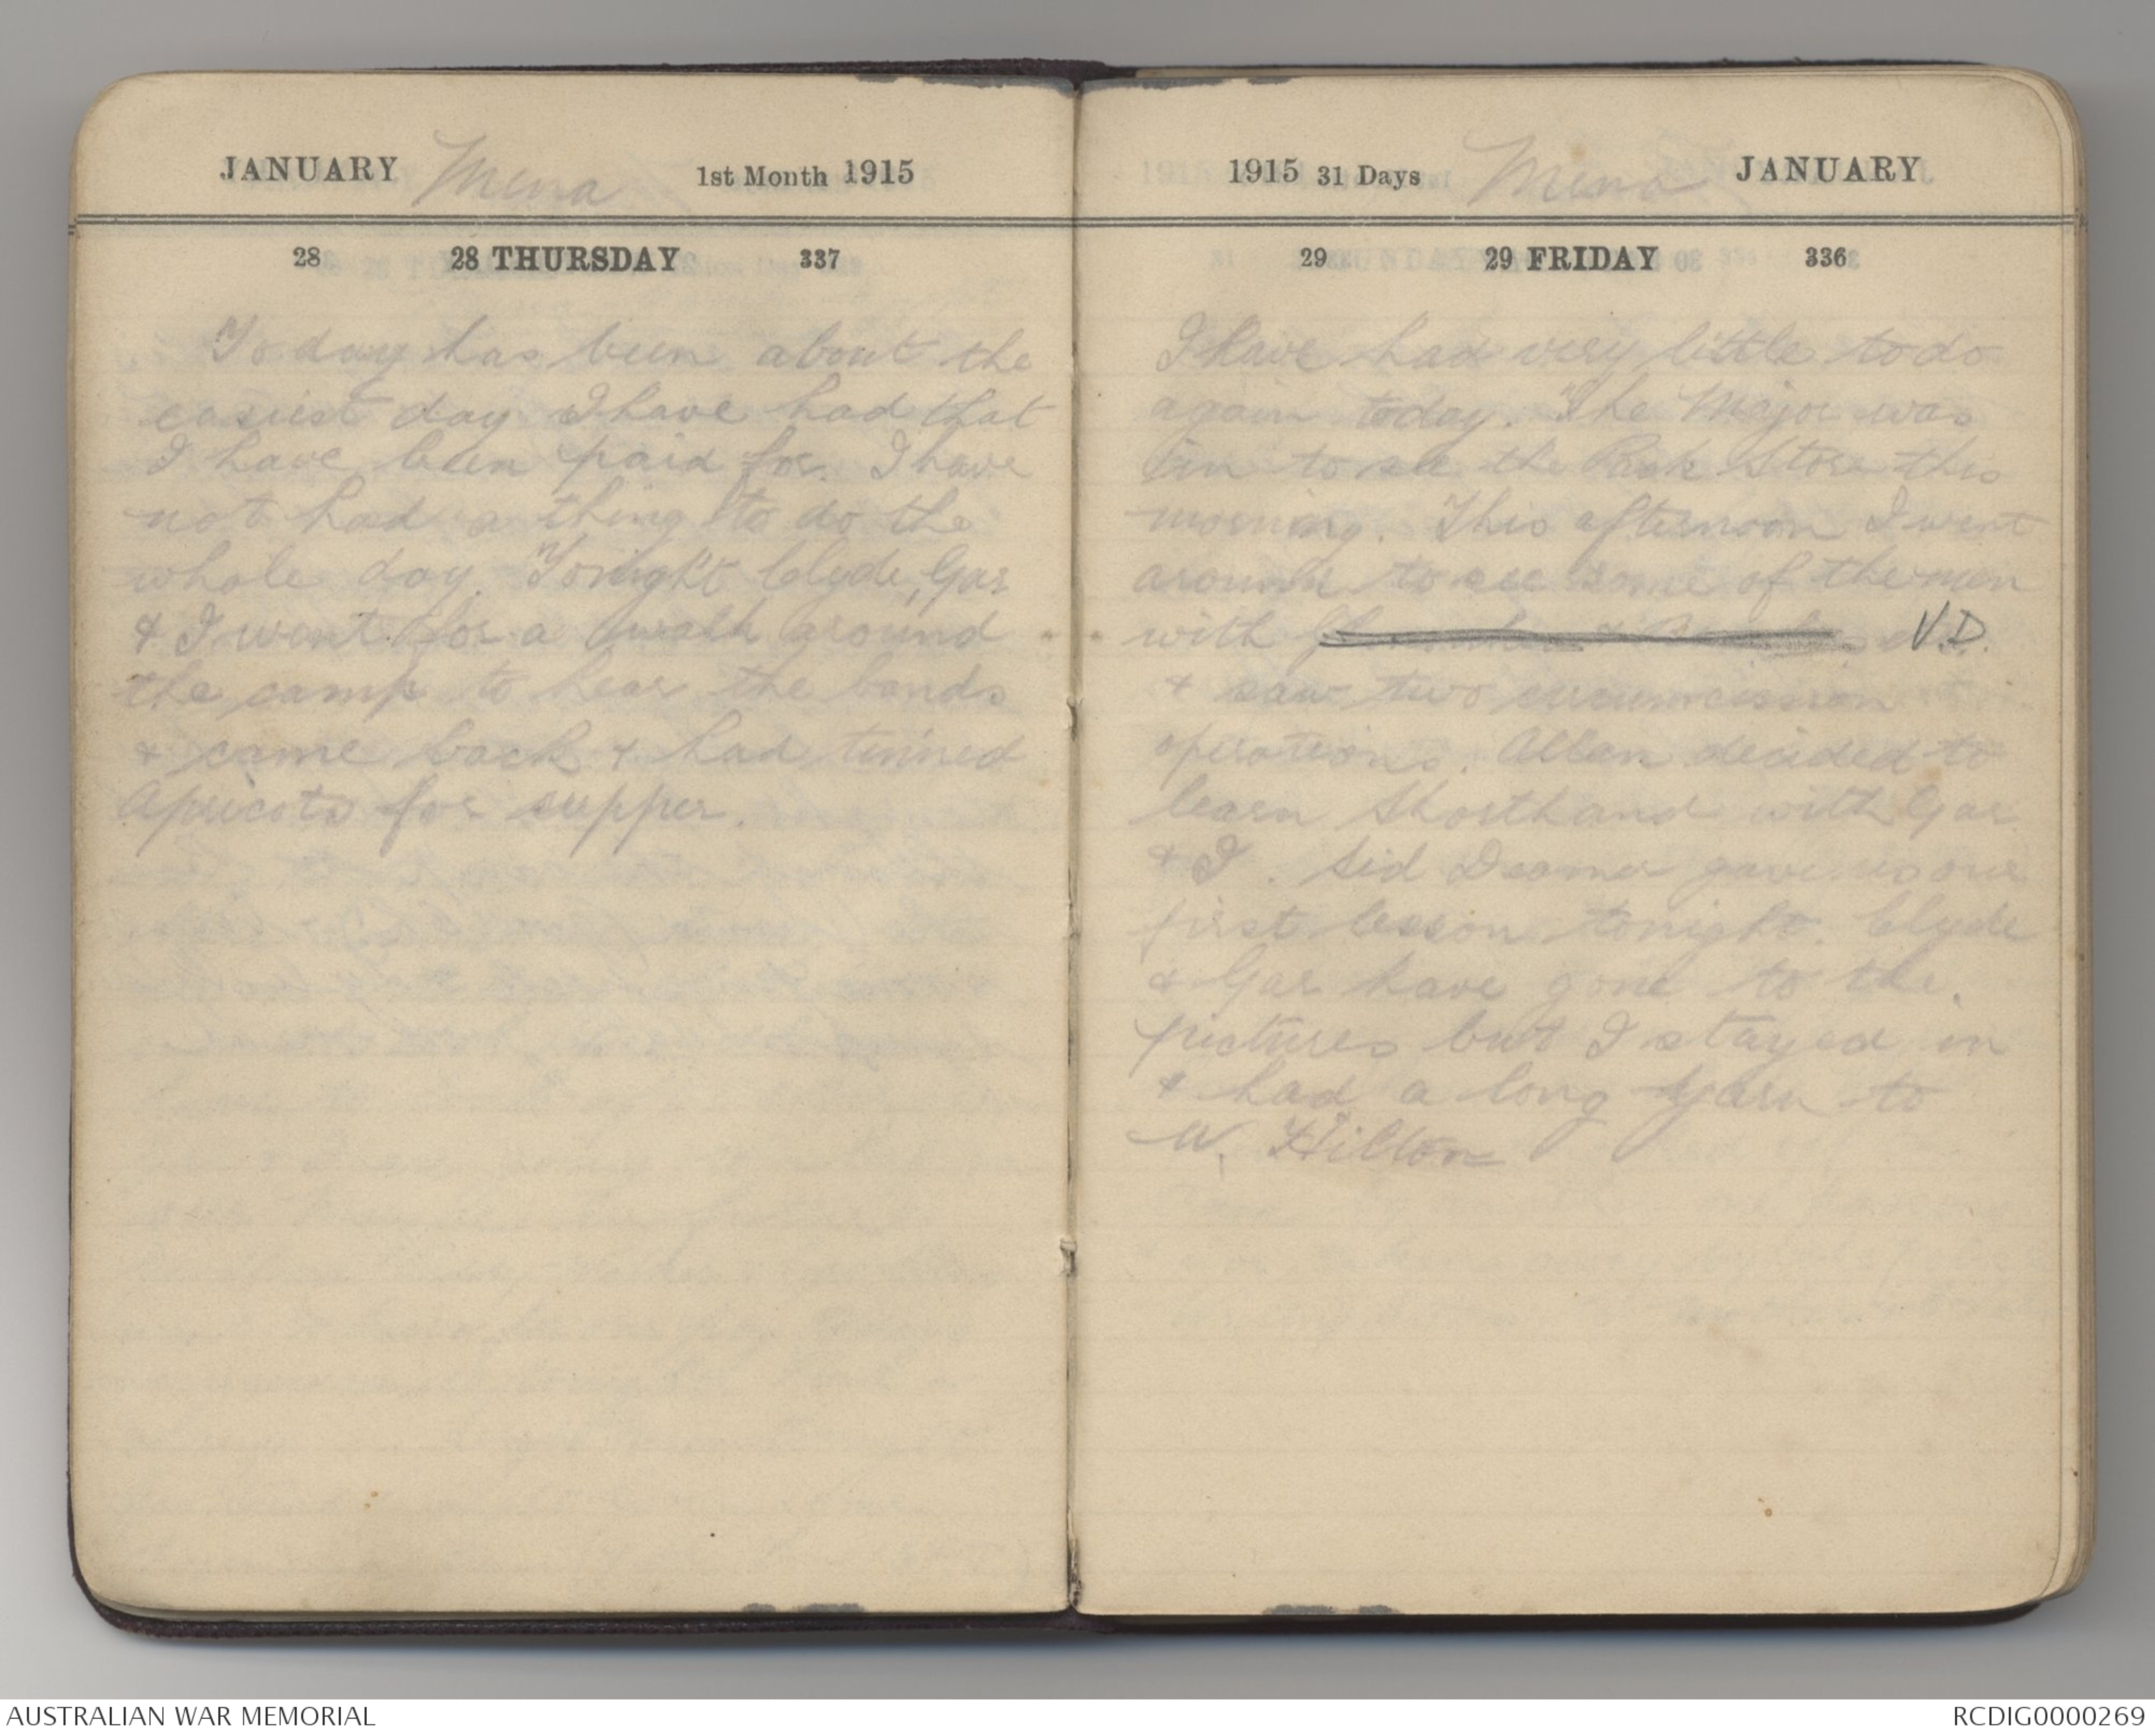 JANUARY Mena 1st Month 1915
28 28 THURSDAY 337
Today has been about the
easiest day I have had that
I have been paid for. I have
not had a thing to do the
whole day. Tonight Clyde, Gar
& I went for a walk around
the camp to hear the bands
& came back & had tinned
Apricots for supper.
1915 31 Days Mena JANUARY
29 29 FRIDAY 336
I have had very little to do
again today. The Major was
in to see the Pack Store this
morning. This afternoon I went
around to see some of the men
with V.D.
& saw two circumcission
operations. Allan decided to
learn Shorthand with Gar
& I. Sid Deamer gave us our
first lesson tonight. Clyde
& Gar have gone to the
pictures but I stayed in
& had a long yarn to
W. Hilton
AUSTRALIAN WAR MEMORIAL
RCDIG0000269